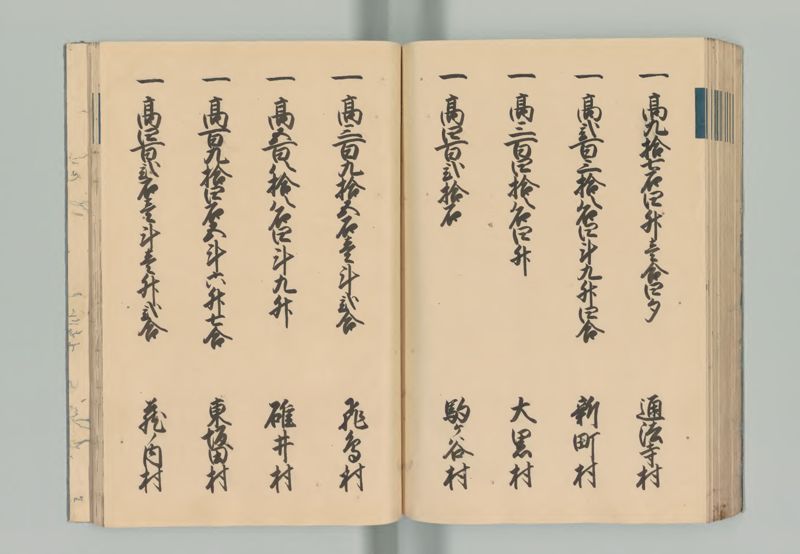 一 高九拾七石四升壱合四夕 通法寺村
一 高弐百三拾八石四斗九升四合 新町村
一 高三百四拾八石四升 大黒村
一 高四百弐拾石 駒ヶ谷村
一 高三百九拾五石壱斗弐合 飛鳥村
一 高五百八拾八石四斗九升 碓井村
一 高百九拾四石五斗六升七合 東坂田村
一 高四百弐石壱斗壱升弐合 蔵ノ内村